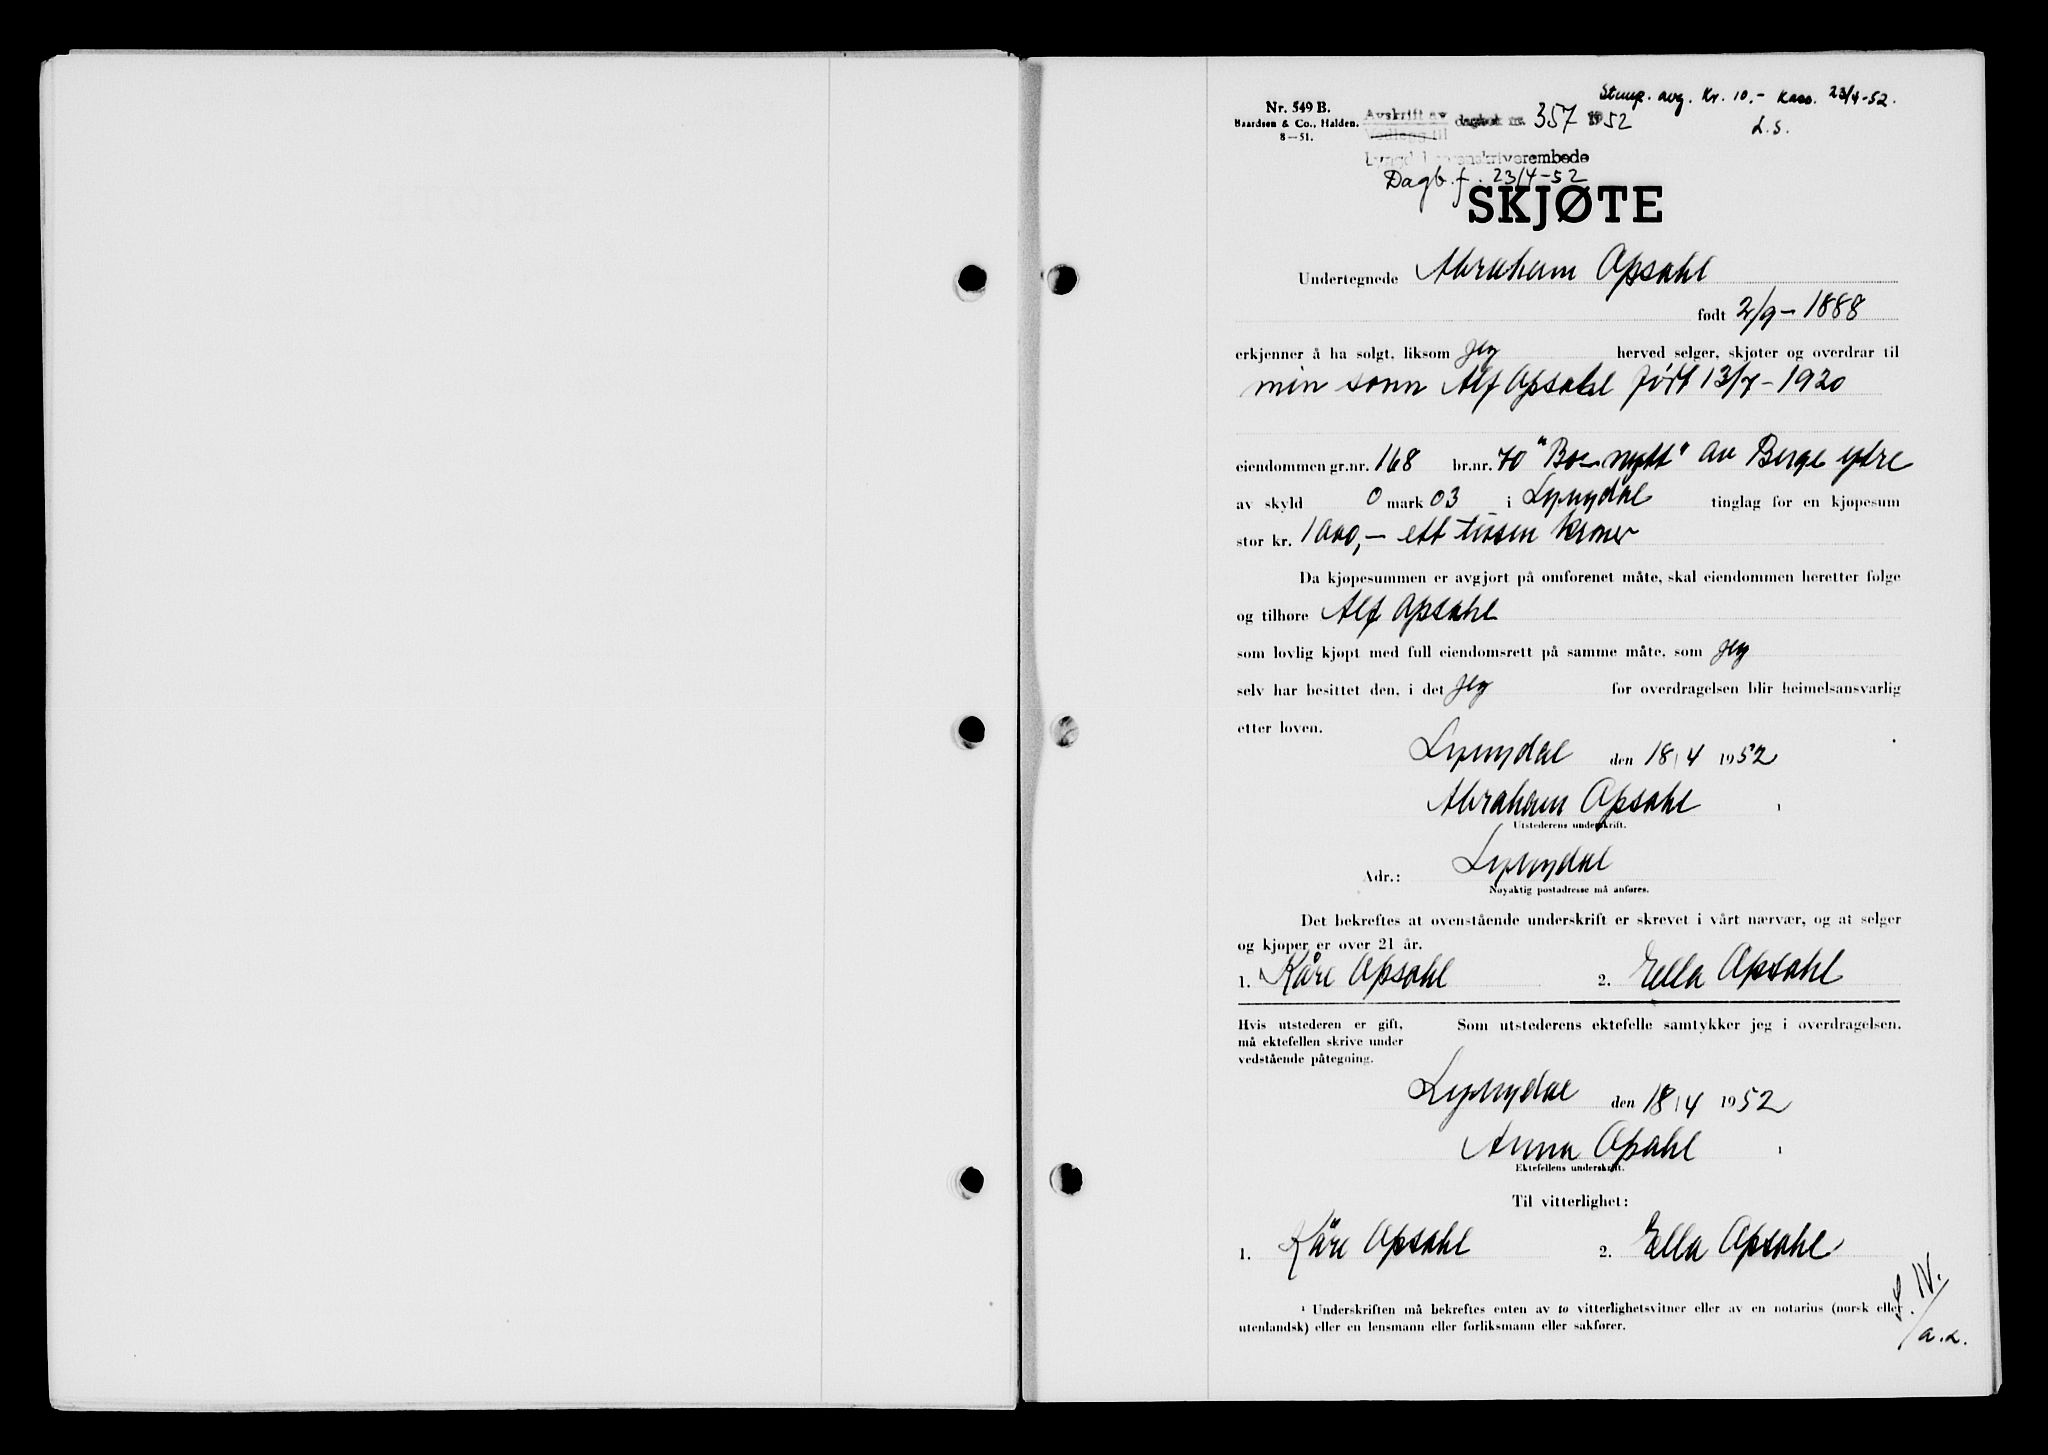 Stemp. avg. Kr. 10.- Kass. 23/4-52.
L.S.
Nr. 549 B.
Baardsen & Co., Halden.
8—51.
Avskrift av dagbok nr. 357 1952
Vedlegg til
Lyngdal sorenskriverembede
Dagb.f. 23/4-52
SKJØTE
Undertegnede Abraham Opsahl
født 2/9-1888
erkjenner å ha solgt, liksom jeg herved selger, skjøter og overdrar til
min sønn Alf Opsahl født 13/7-1920
eiendommen gr.nr. 168 br.nr. 70 "Bo-nytt" av Berge ytre
av skyld 0 mark 03 i Lyngdal tinglag for en kjøpesum
stor kr. 1000,- ett tusen kroner
Da kjøpesummen er avgjort på omforenet måte, skal eiendommen heretter følge
og tilhøre Alf Opsahl
som lovlig kjøpt med full eiendomsrett på samme måte, som jeg
selv har besittet den, i det jeg for overdragelsen blir heimelsansvarlig
etter loven.
Lyngdal den 18/4 1952
Abraham Opsahl ¹
Utstederens underskrift.
Adr.: Lyngdal
Nøyaktig postadresse må anføres.
Det bekreftes at ovenstående underskrift er skrevet i vårt nærvær, og at selger
og kjøper er over 21 år.
1. Kåre Opsahl 2. Ella Opsahl
Hvis utstederen er gift, Som utstederens ektefelle samtykker jeg i overdragelsen.
må ektefellen skrive under
vedstående påtegning.
Lyngdal den 18/4 1952
Anna Opsahl ¹
Ektefellens underskrift.
Til vitterlighet:
1. Kåre Opsahl 2. Ella Opsahl
¹ Underskriften må bekreftes enten av to vitterlighetsvitner eller av en notarius (norsk eller
utenlandsk) eller en lensmann eller forliksmann eller sakfører.